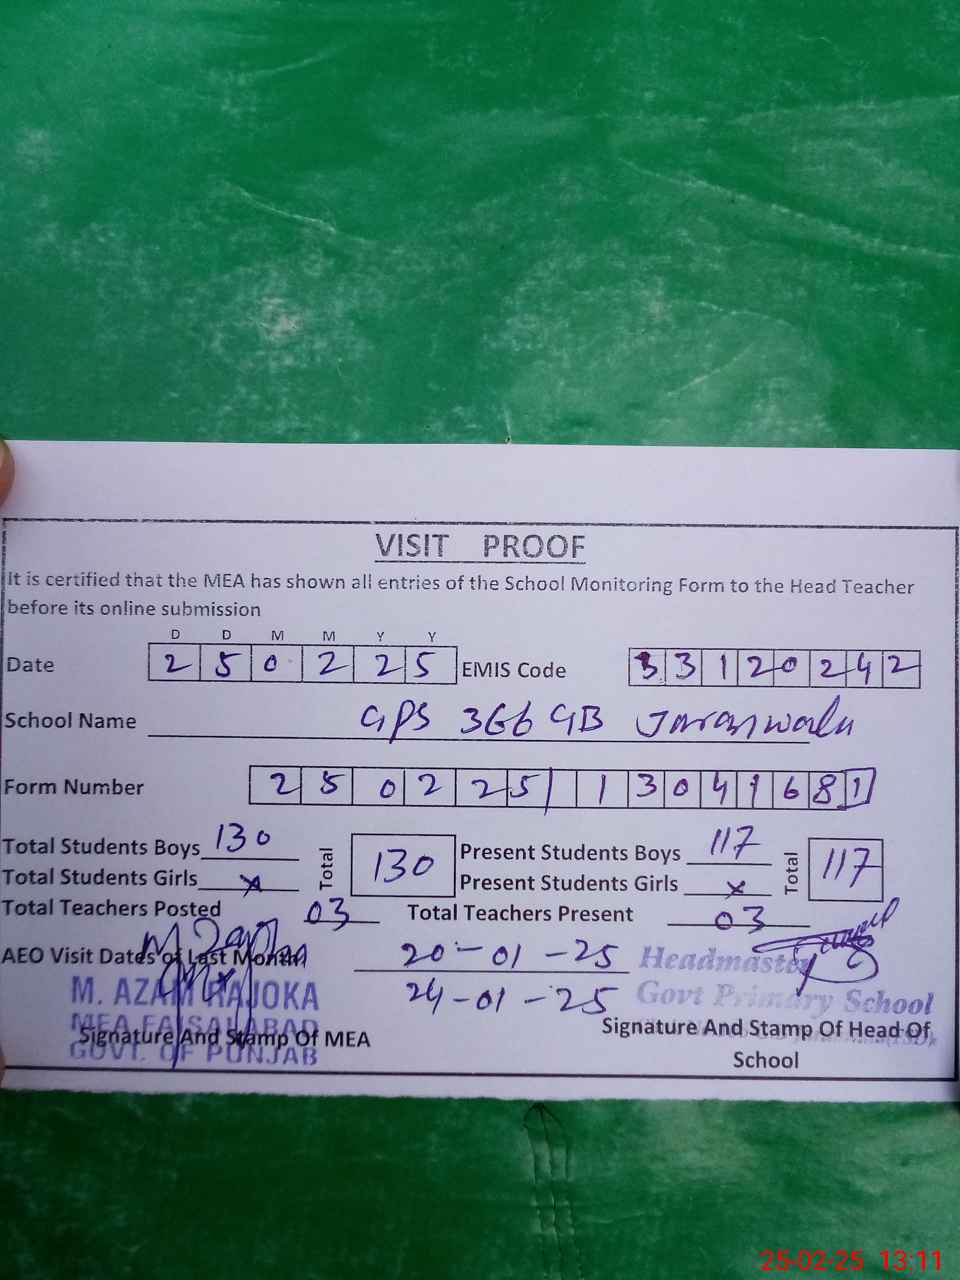 VISIT PROOF
It is certified that the MEA has shown all entries of the School Monitoring Form to the Head Teacher
before its online submission
D D M M Y Y
Date 2 5 0 2 2 5 EMIS Code 3 3 1 2 0 2 4 2
School Name GPS 366 GB Jaranwala
Form Number 2 5 0 2 2 5 1 3 0 4 1 6 8 1
Total Students Boys 130 Total 130 Present Students Boys 117 Total 117
Total Students Girls x Present Students Girls x
Total Teachers Posted 03 Total Teachers Present 03
AEO Visit Dates of Last Month 20-01-25 Headmaster
M. AZAM RAJOKA 24-01-25 Govt Primary School
MEA FAISALABAD
Signature And Stamp Of MEA Signature And Stamp Of Head Of
GOVT. OF PUNJAB School
25-02-25 13:11